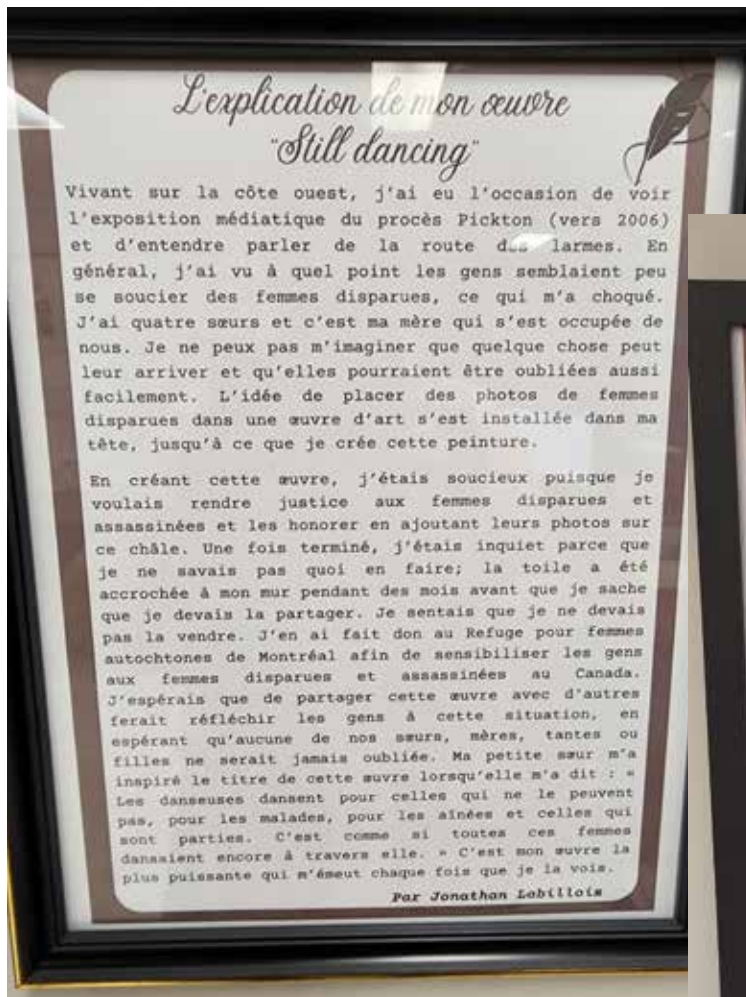 L'explication de mon œuvre
"Still dancing"
Vivant sur la côte ouest, j'ai eu l'occasion de voir
l'exposition médiatique du procès Pickton (vers 2006)
et d'entendre parler de la route des larmes. En
général, j'ai vu à quel point les gens semblaient peu
se soucier des femmes disparues, ce qui m'a choqué.
J'ai quatre sœurs et c'est ma mère qui s'est occupée de
nous. Je ne peux pas m'imaginer que quelque chose peut
leur arriver et qu'elles pourraient être oubliées aussi
facilement. L'idée de placer des photos de femmes
disparues dans une œuvre d'art s'est installée dans ma
tête, jusqu'à ce que je crée cette peinture.
En créant cette œuvre, j'étais soucieux puisque je
voulais rendre justice aux femmes disparues et
assassinées et les honorer en ajoutant leurs photos sur
ce châle. Une fois terminé, j'étais inquiet parce que
je ne savais pas quoi en faire; la toile a été
accrochée à mon mur pendant des mois avant que je sache
que je devais la partager. Je sentais que je ne devais
pas la vendre. J'en ai fait don au Refuge pour femmes
autochtones de Montréal afin de sensibiliser les gens
aux femmes disparues et assassinées au Canada.
J'espérais que de partager cette œuvre avec d'autres
ferait réfléchir les gens à cette situation, en
espérant qu'aucune de nos sœurs, mères, tantes ou
filles ne serait jamais oubliée. Ma petite sœur m'a
inspiré le titre de cette œuvre lorsqu'elle m'a dit : «
Les danseuses dansent pour celles qui ne le peuvent
pas, pour les malades, pour les aînées et celles qui
sont parties. C'est comme si toutes ces femmes
dansaient encore à travers elle. » C'est mon œuvre la
plus puissante qui m'émeut chaque fois que je la vois.
Par Jonathan Labillois